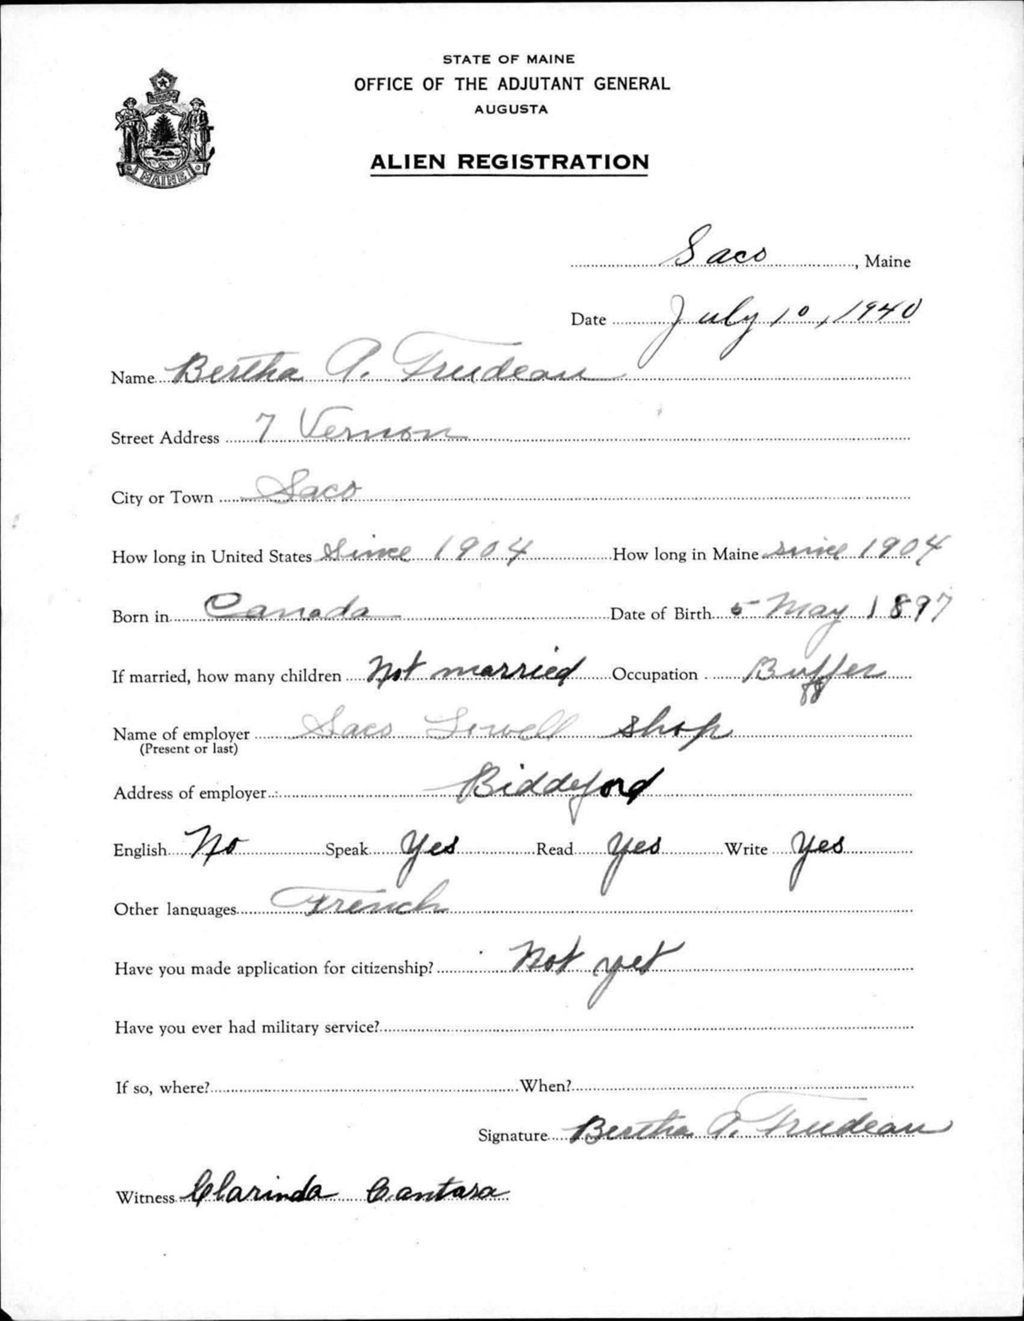 STATE OF MAINE
OFFICE OF THE ADJUTANT GENERAL
AUGUSTA
ALIEN REGISTRATION
MAINE
Saco, Maine
Date July 10, 1940
Name Bertha A. Trudeau
Street Address 7 Vernon
City or Town Saco
How long in United States Since 1904 How long in Maine since 1904
Born in Canada Date of Birth 5 May 1897
If married, how many children Not married Occupation Buffer
Name of employer Saco Lowell Shop
(Present or last)
Address of employer Biddeford
English No Speak Yes Read Yes Write Yes
Other languages French
Have you made application for citizenship? Not yet
Have you ever had military service?
If so, where? When?
Signature Bertha A. Trudeau
Witness Clarinda Cantara